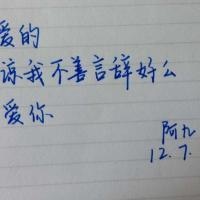 爱的
谅我不善言辞好么
爱你
阿九
12.7.